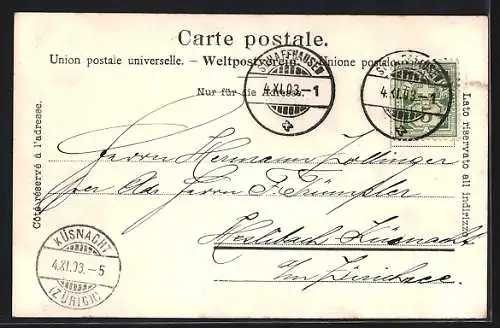 Carte postale.
Union postale universelle. — Weltpostverein. — Unione postale
Nur für die Adresse.
SCHAFFHAUSEN
4.XI.03.-1
4.XI.03.
5
Côté réservé à l'adresse.
Lato riservato all indirizzo
Herrn Hermann Zollinger
per Ads. Herrn F. Trümpler
Küsnacht
a/m Zürichsee.
KÜSNACHT
4.XI.03.-5
(ZÜRICH)